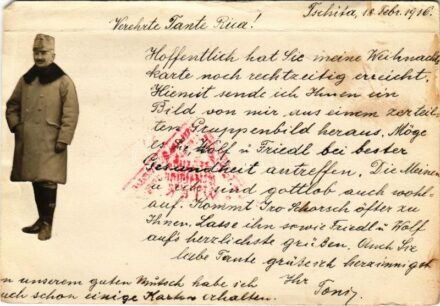 Tschita, 18. Febr. 1916.
Verehrte Tante Rua!
Hoffentlich hat Sie meine Weihnachts
karte noch rechtzeitig erreicht.
Hiemit sende ich Ihnen ein
Bild von mir, aus einem zerteil-
ten Gruppenbild heraus. Möge
es Sie, Wolf u Friedl bei bester
Gesundheit antreffen. Die Meinen
u sind gottlob auch wohl-
auf. Kommt Gro Schorsch öfter zu
Ihnen. Lasse ihn sowie Friedl u Wolf
aufs herzlichste grüßen. Auch Sie
liebe Tante grüsset herzinnigst
Ihr
Toni
von unserem guten Mutsch habe ich
auch schon einige Karten erhalten.